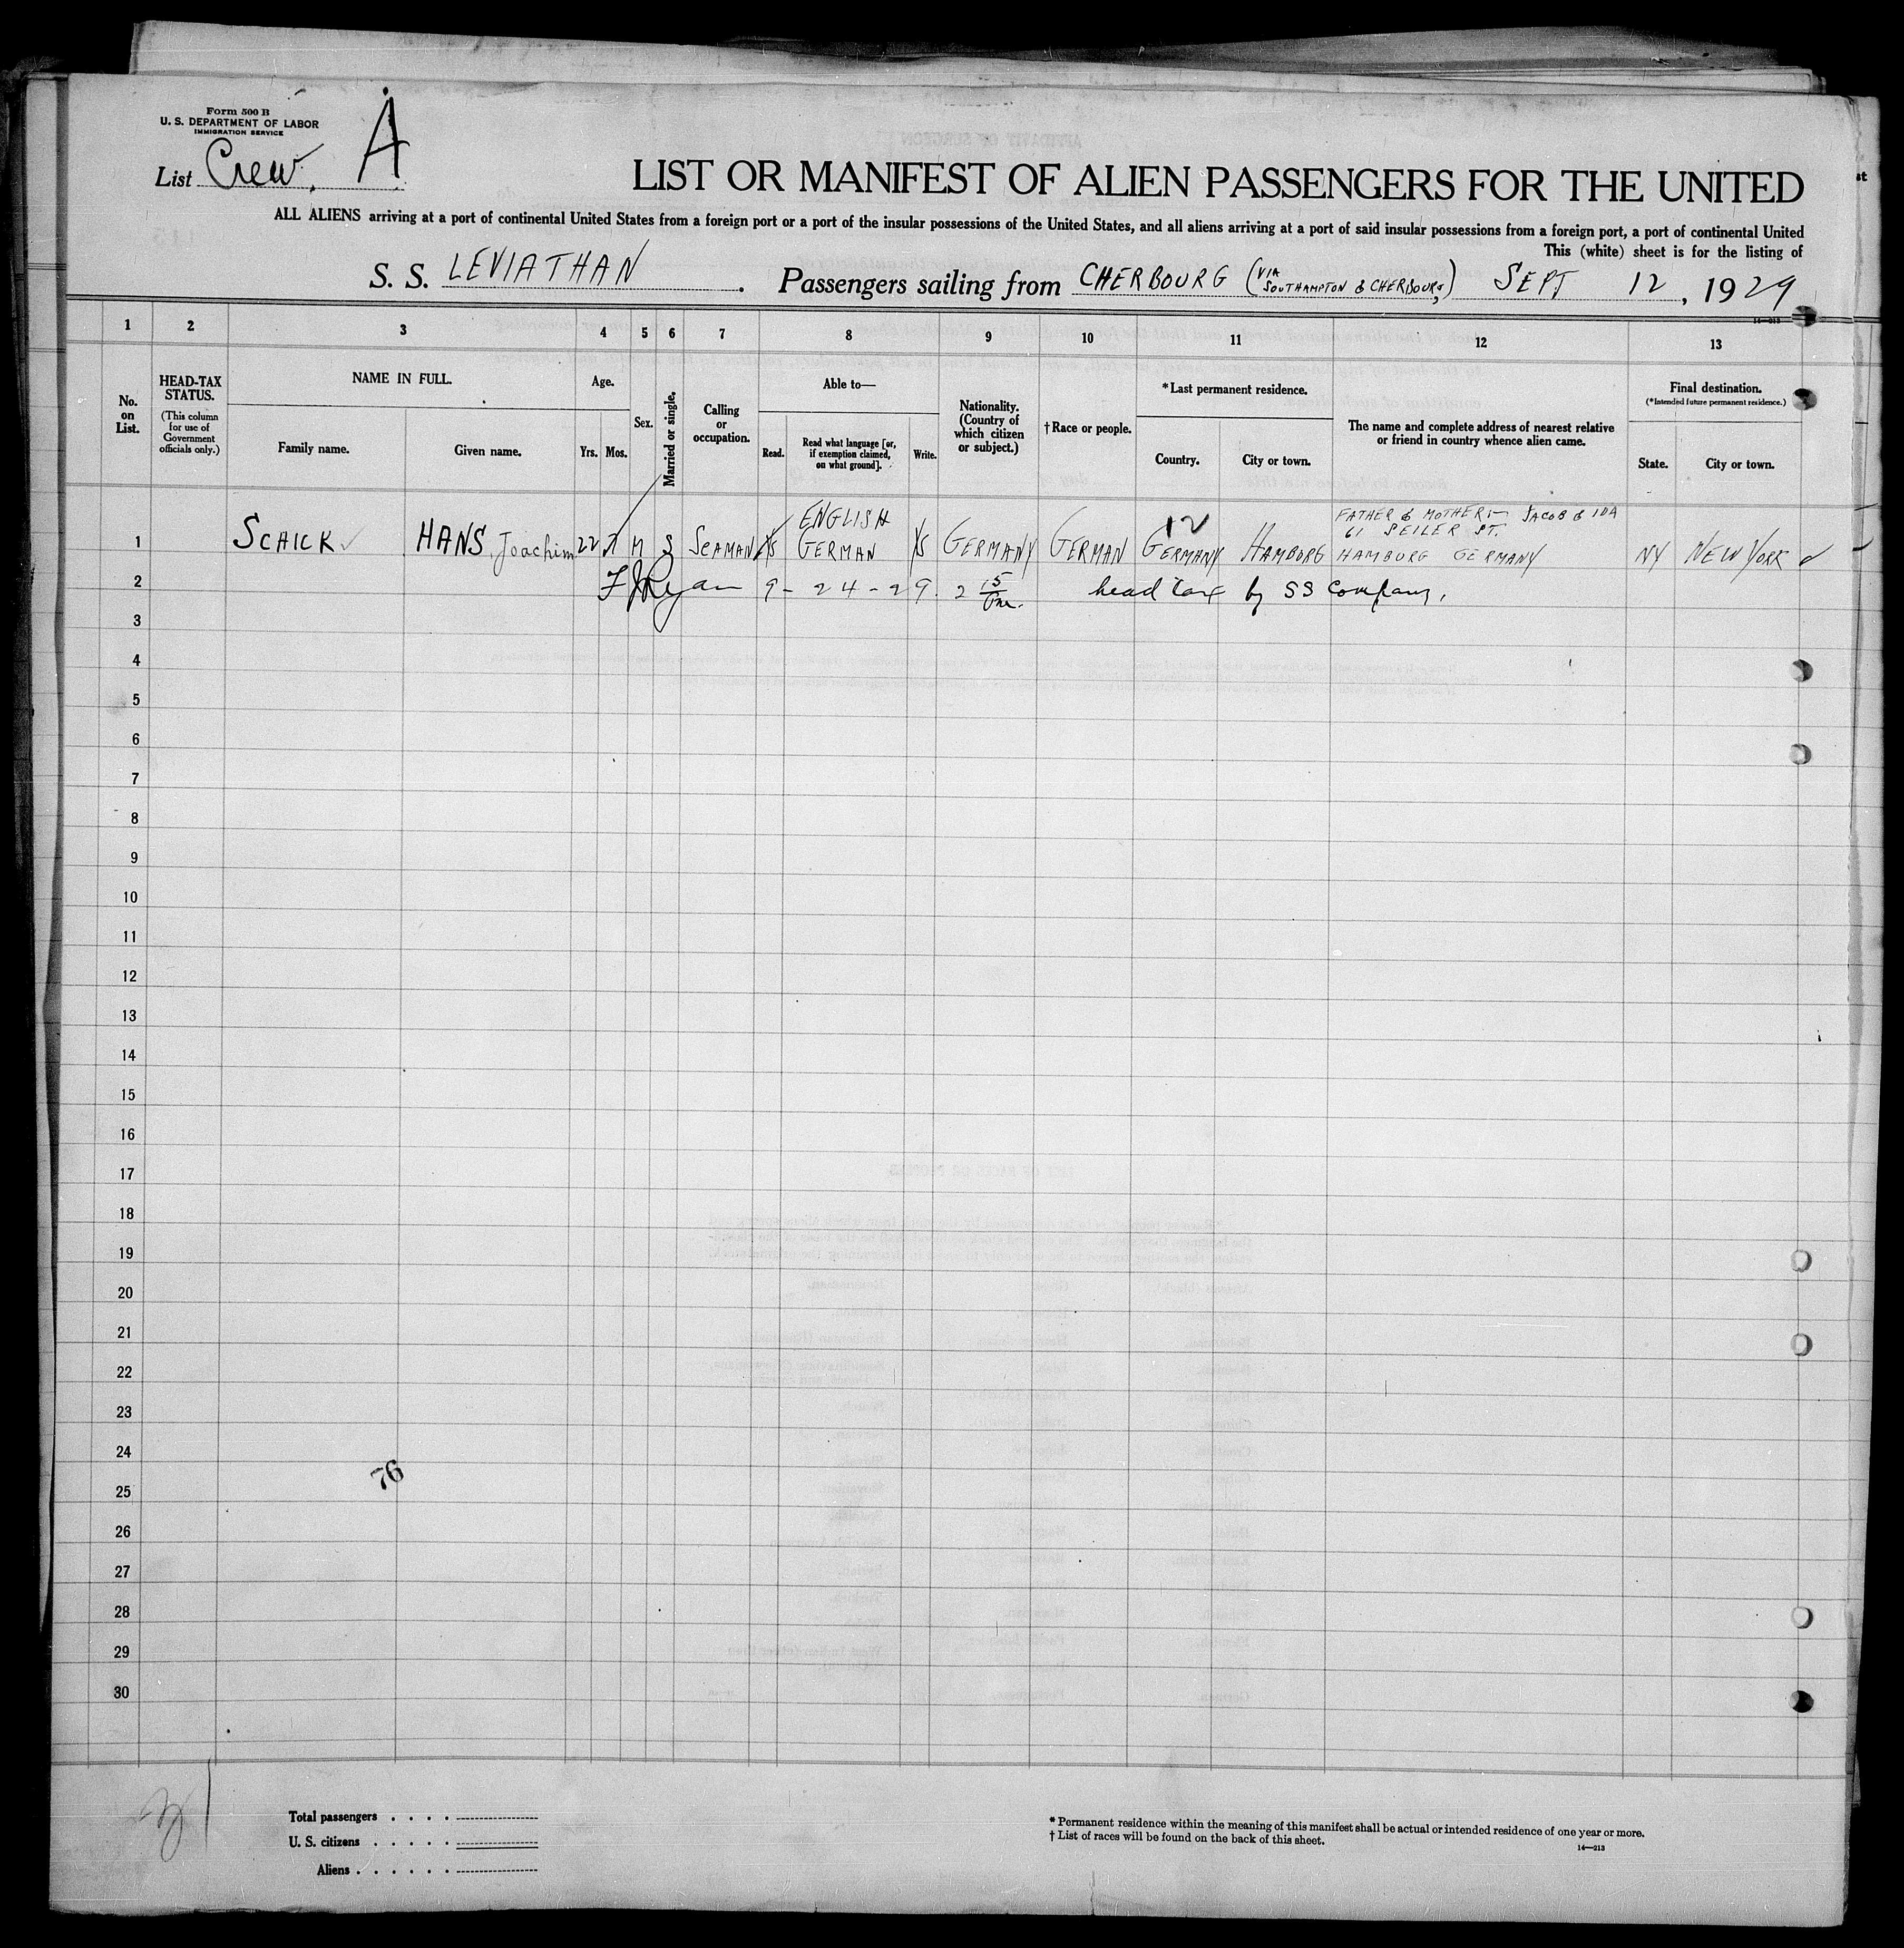 Form 500 B
U. S. DEPARTMENT OF LABOR
IMMIGRATION SERVICE
List Crew. A
LIST OR MANIFEST OF ALIEN PASSENGERS FOR THE UNITED
ALL ALIENS arriving at a port of continental United States from a foreign port or a port of the insular possessions of the United States, and all aliens arriving at a port of said insular possessions from a foreign port, a port of continental United
This (white) sheet is for the listing of
S. S. LEVIATHAN . Passengers sailing from CHERBOURG (VIA SOUTHAMPTON & CHERBOURG) SEPT 12, 1929
14—213
1 2 3 4 5 6 7 8 9 10 11 12 13
No. on List.
HEAD-TAX STATUS.
(This column for use of Government officials only.)
NAME IN FULL.
Family name.
Given name.
Age.
Yrs. Mos.
Sex.
Married or single.
Calling or occupation.
Able to—
Read.
Read what language [or, if exemption claimed, on what ground].
Write.
Nationality. (Country of which citizen or subject.)
† Race or people.
* Last permanent residence.
Country.
City or town.
The name and complete address of nearest relative or friend in country whence alien came.
Final destination.
(*Intended future permanent residence.)
State.
City or town.
1 SCHICK HANS Joachim 22 M S SEAMAN YS ENGLISH GERMAN YS GERMANY GERMAN GERMANY HAMBURG FATHER & MOTHER:- JACOB & IDA 61 SEILER ST. HAMBURG GERMANY NY NEW YORK
12
2 F J Ryan 9-24-29. 2 15/Pm. head tax by SS Company.
3
4
5
6
7
8
9
10
11
12
13
14
15
16
17
18
19
20
21
22
23
24
76
25
26
27
28
29
30
Total passengers . . . .
U. S. citizens . . . . .
Aliens . . . . . .
* Permanent residence within the meaning of this manifest shall be actual or intended residence of one year or more.
† List of races will be found on the back of this sheet.
14—213